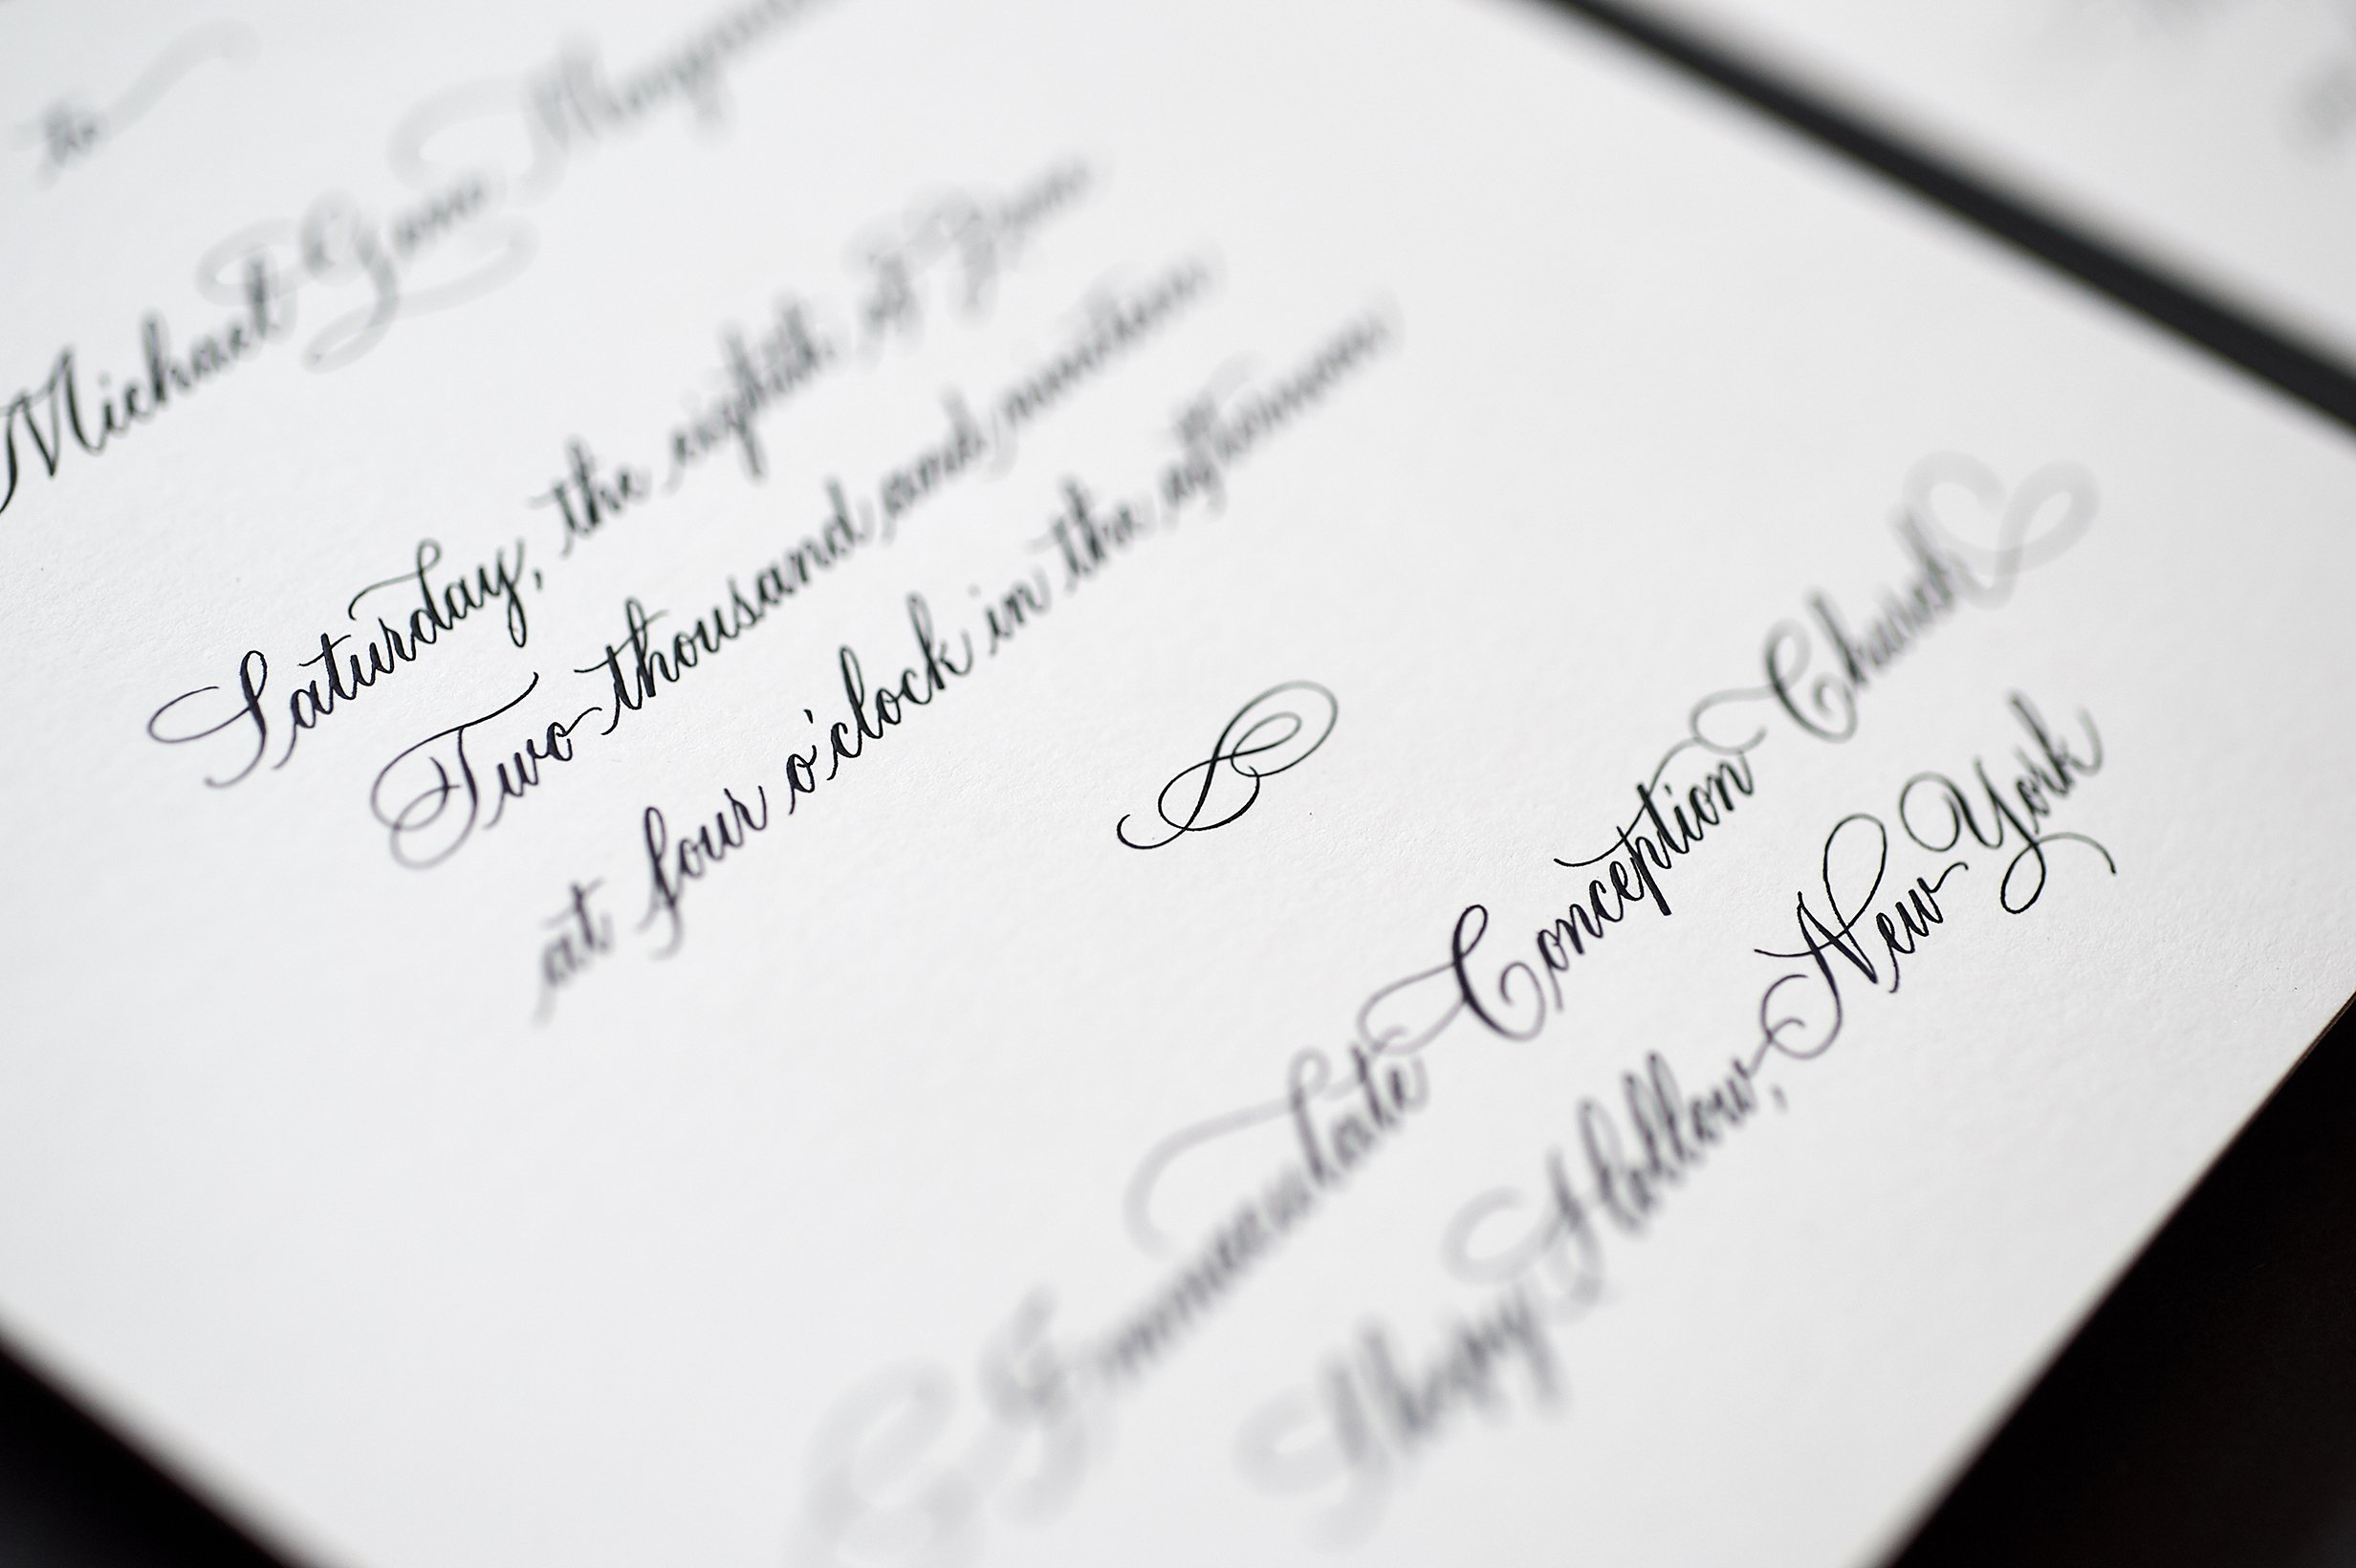 to
Michael
Saturday, the eighth of June
Two-thousand and nineteen
at four o'clock in the afternoon
Immaculate Conception Church
Sleepy Hollow, New York